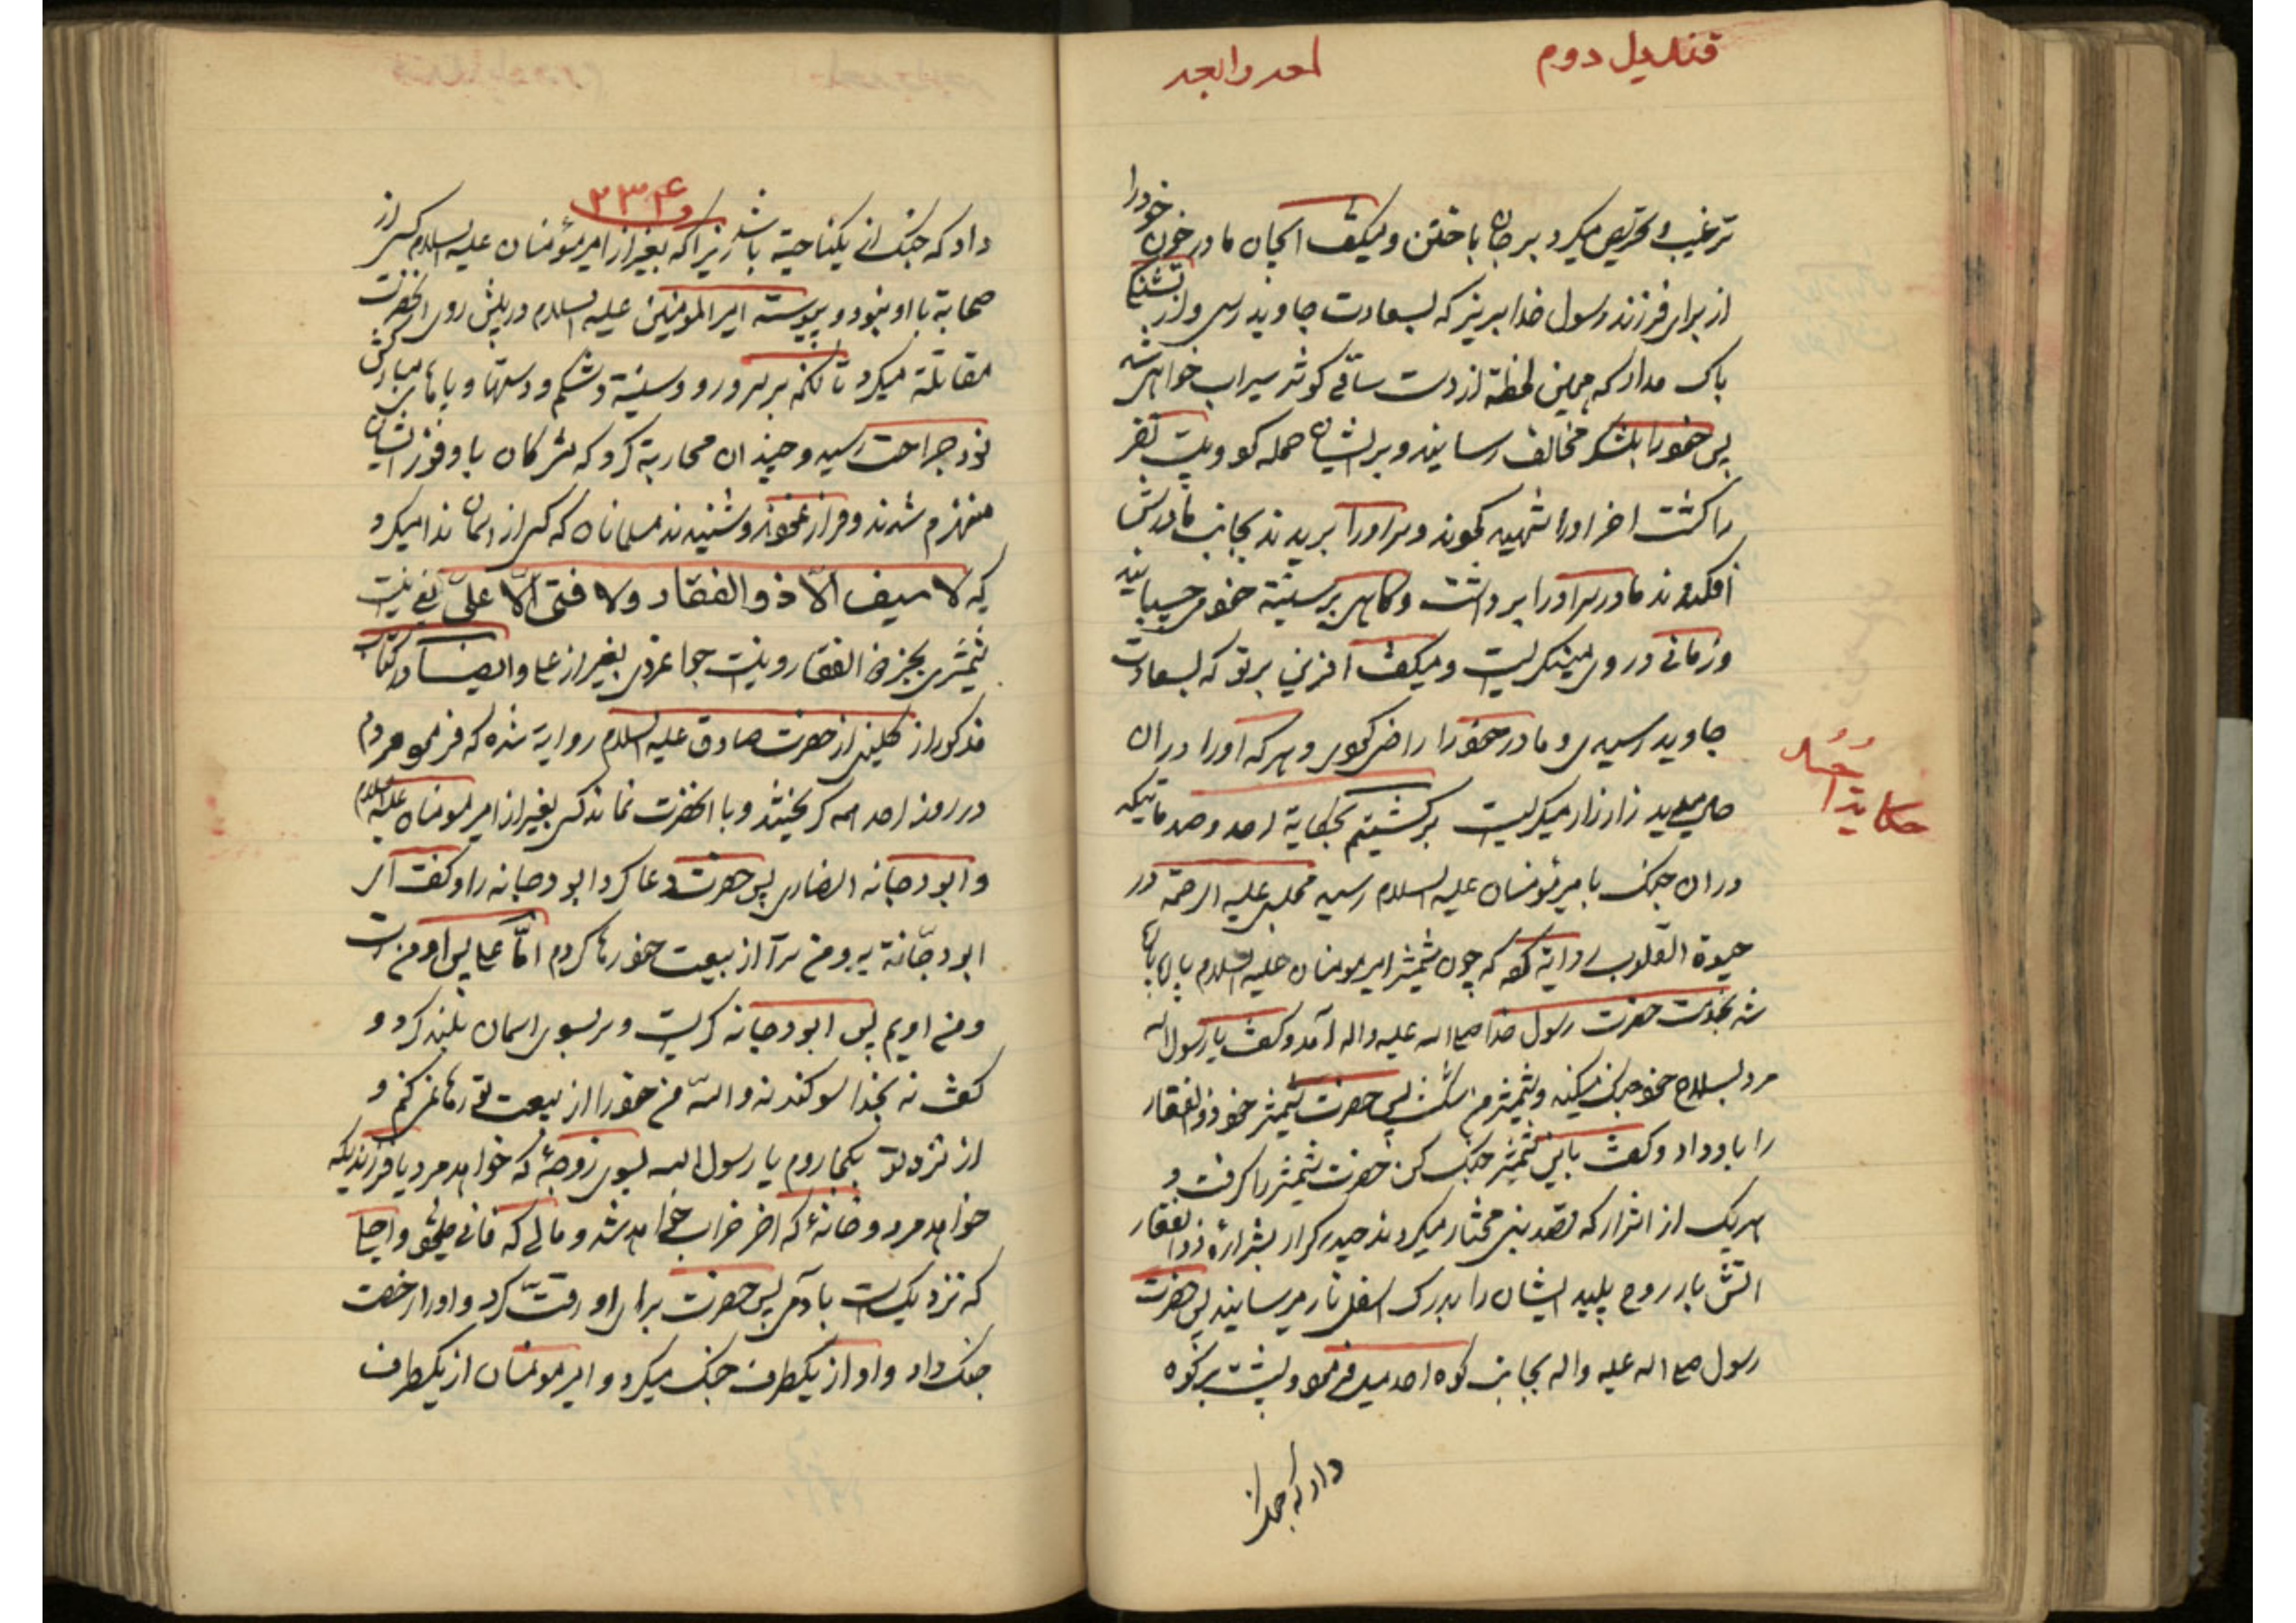 قندیل دوم
ترغیب و تحریص میکرد بر جان باختن و میگفت ایجان مادر خون خودرا
از برای فرزند رسول خدا بریز که بسعادت جاوید رسی و از تشنگی
باک مدار که همین لحظة از دست ساقی کوثر سیراب خواهی شد
پس خودرا بلشکر مخالف رسانید و بر ایشان حمله و بیست نفر
را کشت اخر اورا شهید و سر اورا بریدند بجانب مادرش
افکندند مادر سر اورا برداشت و گاهی بر سینة خود میچسبانید
و زمانی در روی مینگریست و میگفت افرین بر تو که بسعادت
جاوید رسیدی و مادر خودرا راضی و هر که اورا در ان
حال میدید زار زار میگریست برگشتیم بحکایة احد و صدماتیکه
حکایة احد
در ان جنگ بامیرمؤمنان علیه السلام رسید مجلسی علیه الرحمة در
حیوة القلوب روایة که چون شمشیر امیرمومنان علیه السلام پاره پاره
شد بخدمت حضرت رسول خدا صلی الله علیه واله آمد و گفت یا رسول الله
مرد بسلاح خود جنگ میکند و شمشیر من شکست پس حضرت شمشیر خود ذوالفقار
را باو داد و گفت باین شمشیر جنگ کن حضرت شمشیر را گرفت و
هریک از اشرار که قصد نبی مختار میکردند حیدر کرار بشرارۀ ذوالفقار
اتش بار روح پلید ایشان را بدرک اسفل نار میرسانید پس حضرت
رسول صلی الله علیه واله بجانب کوه احد میل و پشت بر کوه
داد که جنگ از
۲۳۴
داد که جنگ از یکناحیة باشد زیرا که بغیر از امیرمؤمنان علیه السلام کسی از
صحابة با او نبود و پیوسته امیرالمومنین علیه السلام در پیش روی انحضرت
مقاتلة میکرد تا انکه بر سر و رو و سینة و شکم و دستها و پاهای مبارکش
نود جراحت رسید و چندان محاربة کرد که مشرکان با وفور ایشان
منهزم شدند و فرار و شنیدند مسلمانان که کسی از اسمان ندا میکرد
که لا سیف الّا ذو الفقار ولا فتی الّا علیّ یعنی نیست
شمشیری بجز ذو الفقار و نیست جوانمردی بغیر از علی و ایضاً در کتاب
مذکور از کلینی از حضرت صادق علیه السلام روایة شده که مردم
در روز احد همه گریختند و با انحضرت نماند کسی بغیر از امیرمومنان علیه السلام
و ابودجانه انصاری پس حضرت دعا کرد ابودجانه را و گفت ای
ابودجّانة برو من ترا از بیعت خود رها کردم امّا علی پس او من است
و من اویم پس ابودجانه گریست و سر بسوی اسمان بلند کرد و
گفت نه بخدا سوگند نه والله من خودرا از بیعت تو رها نمیکنم و
از نزد تو بکجا روم یا رسول الله بسوی زوجۀ که خواهد مرد یا فرزندیکه
خواهد مرد و خانۀ که اخر خراب خواهد شد و مالی که فانی و اجلی
که نزدیک است بادمی پس حضرت برای او رقتّ کرد و اورا رخصت
جنگ داد و او از یکطرف جنگ میکرد و امیرمومنان از یکطرف